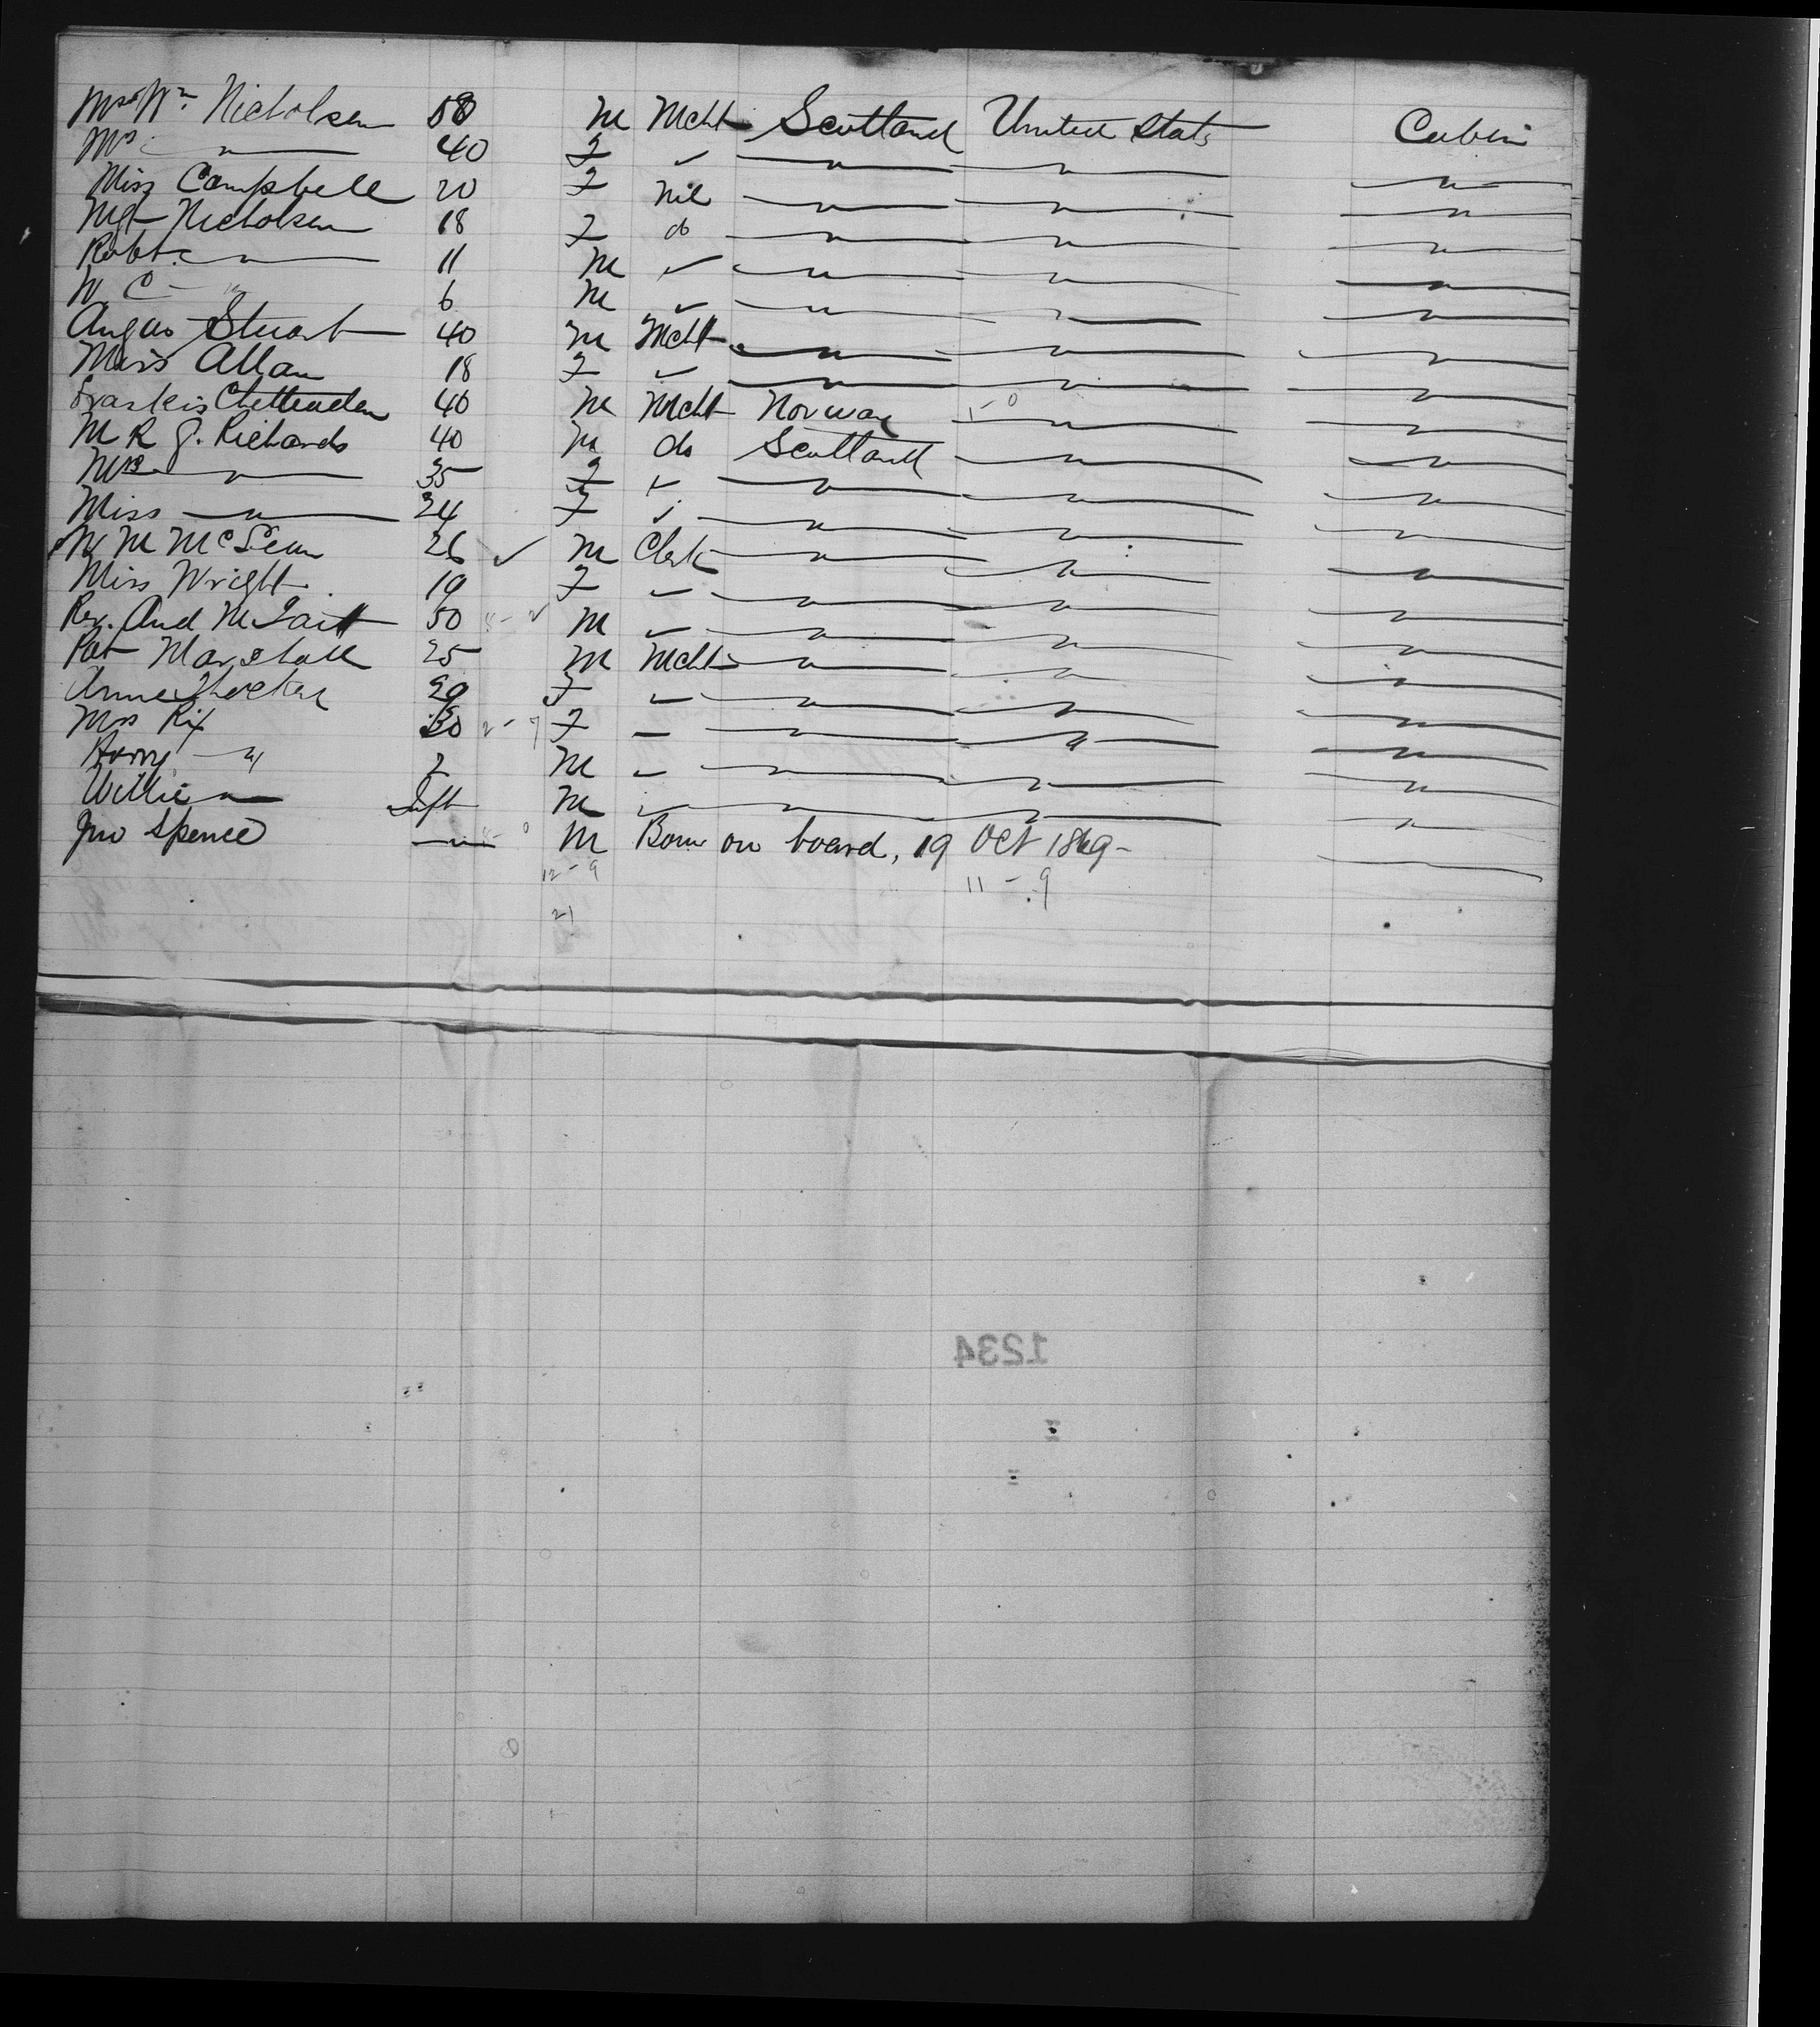 Wm Nicholson 50 M Mcht Scotland United States Cabin
Mrs " 40 F " " " "
Miss Campbell 20 F nil " " "
Mgt Nicholson 18 F do " " "
Robt " 11 M " " " "
W C " 6 M " " " "
Angus Stuart 40 M Mcht " " "
Miss Allan 18 F " " " "
Chittenden 40 M Mcht Norway " "
M R J. Richards 40 M do Scotland " "
Mrs " 35 F " " " "
Miss " 24 F " " " "
W M McLean 26 ✓ M Clerk " " "
Miss Wright 19 F " " " "
Rev. And 50 M " " " "
Pat Marshall 25 M Mcht " " "
Anne F " " " "
Mrs Rix 30 2 - 7 F " " " "
Harry " 2 M " " " "
Willie " Inft M " " " "
Jno Spence " M Born on board, 19 Oct 1869 - "
12 - 9 11 - 9
21
1234